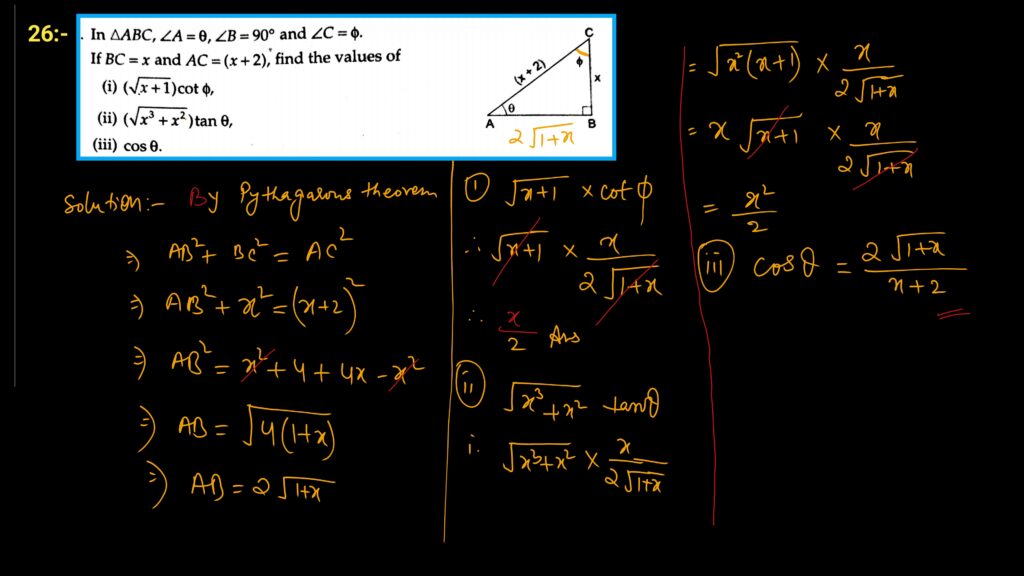 26:-
. In △ABC, ∠A = θ, ∠B = 90° and ∠C = ϕ.
If BC = x and AC = (x + 2), find the values of
(i) (√x + 1) cot ϕ,
(ii) (√x³ + x²) tan θ,
(iii) cos θ.
C
ϕ
(x + 2)
x
θ
A
B
2√1+x
Solution:- By Pythagarous theorem
⇒ AB² + BC² = AC²
⇒ AB² + x² = (x+2)²
⇒ AB² = x² + 4 + 4x - x²
⇒ AB = √4(1+x)
⇒ AB = 2√1+x
i √x+1 × cot ϕ
∴ √x+1 × x / 2√1+x
∴ x/2 Ans
ii √x³+x² tanθ
i. √x³+x² × x / 2√1+x
= √x²(x+1) × x / 2√1+x
= x √x+1 × x / 2√1+x
= x²/2
iii cosθ = 2√1+x / x+2